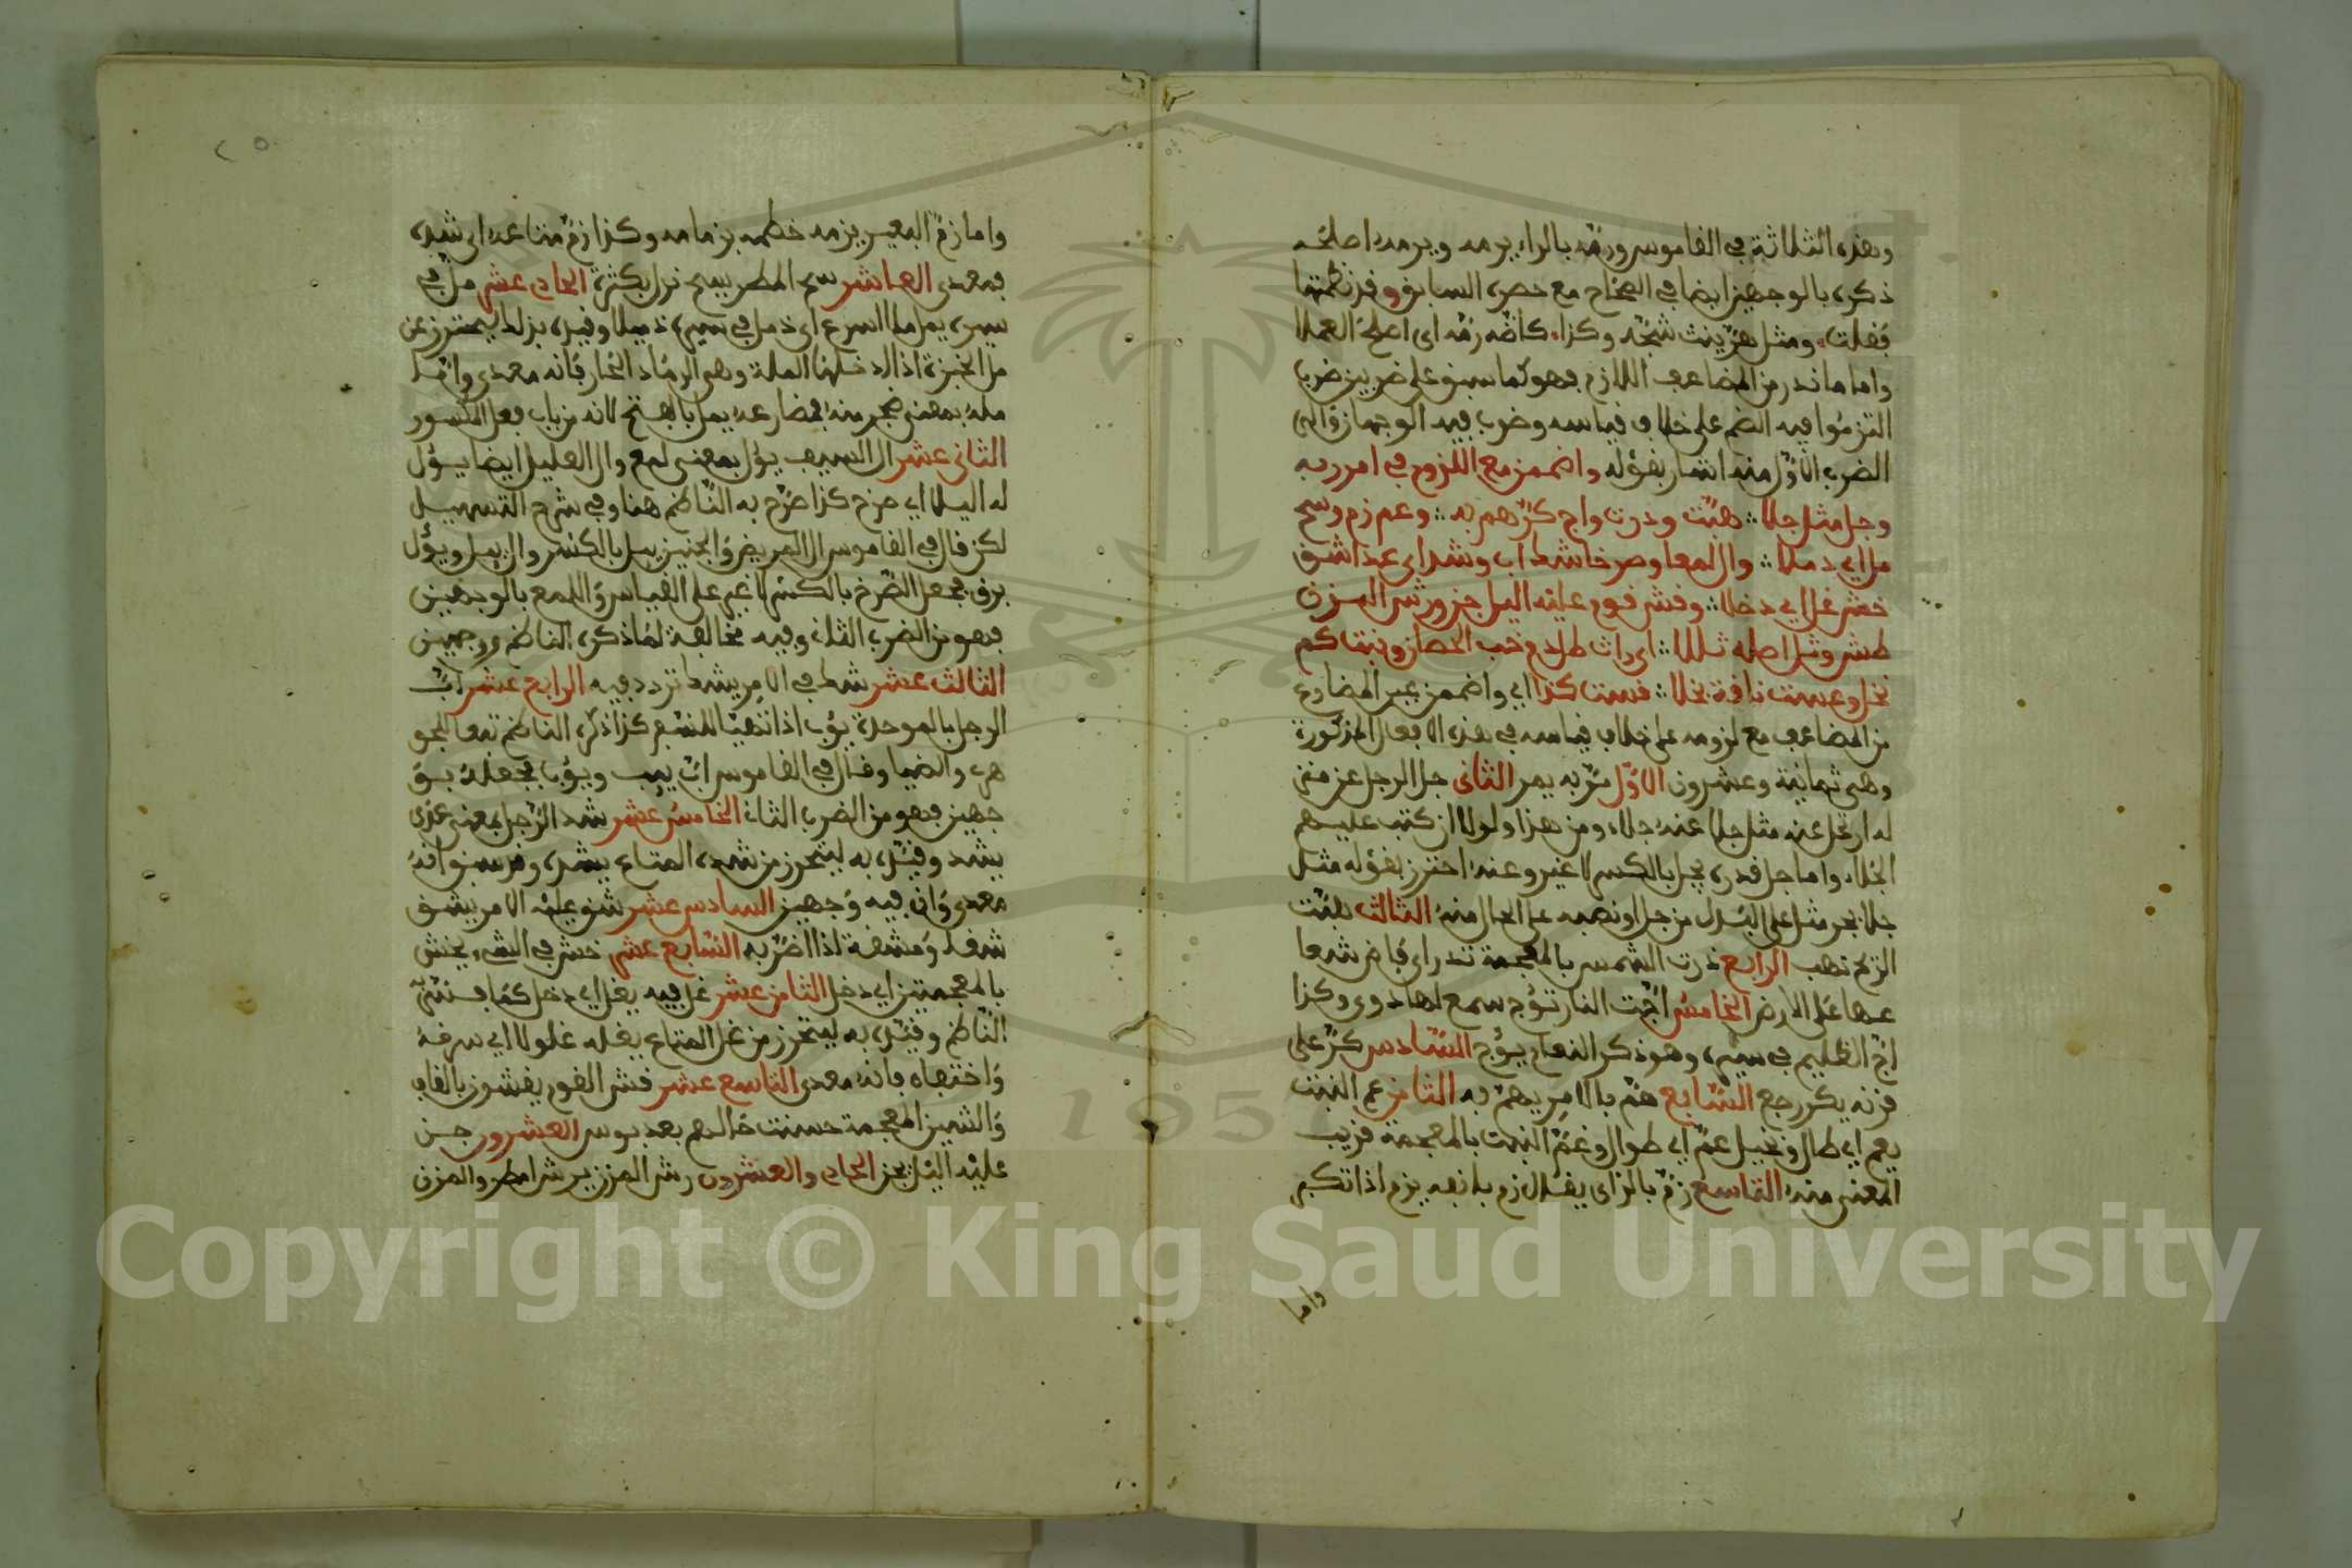 وهذه الثلاثة في القاموس ورمّه بالراء يرمه ويرمه اصلحه
ذكره بالوجهين ايضا في الصحاح مع حصره السابق وقد نظمتها
فقلت ومثل هرّ ينث شجّه وكذا كاضّه رمّه اى اصلح العملا
واما ما ندر من المضاعف اللازم فهو كما سبق على ضربين ضرب
التزموا فيه الضم على خلاف قياسه وضرب فيه الوجهان والى
الضرب الاوّل منه اشار بقوله واضممن مع اللزوم في امرر به
وجل مثل جلا هبّت وذرت واج كرّ هم به وعم زم وسح
مل اي ذملا وال لمعا وصرخا شك اب وشد اى عدا شق
خش غل اي دخلا وقش قوم عليه الليل جن ورش المزن
طش وثل اصله ثللا اى راث طل دم خب الحصان ونبت كم
نخل وعست ناقة بخلا قست كذا اي واضممن عين المضارع
من المضاعف مع لزومه على خلاف قياسه في هذه الافعال المذكورة
وهي ثمانية وعشرون الاوّل مرّ به يمر الثانى جل الرجل عن منز
له ارتحل عنه مثل جلا عنه جلاء ومن هذا ولولا ان كتب عليهم
الجلاء واما جل قدره يجل بالكسر لا غير وعنه احترز بقوله مثل
جلا بجر مثل على البدل من جل او نصبه على الحال منه الثالث هبّت
الريح تهب الرابع ذرت الشمس بالمعجمة تذر اى فاض شعا
عها على الارض الخامس اجّت النار تؤج سمع لها دوى وكذا
اجّ الظليم في سيره وهو ذكر النعام يؤج السّادس كرّ على
قرنه يكر رجع السّابع همّ بالامر يهم به الثامن عم النبت
يعم اي طال ونخيل عمّ اي طوال وغمّ النبت بالمعجمة قريب
المعنى منه التاسع زمّ بالزاى يقال زم بانفه يزم اذا تكبر
واما
٢٥
واما زمّ البعير يزمه خطمه بزمامه وكذا زمّ متاعه اى شده
فمعدى العاشر سح المطر يسح نزل بكثرة الحادى عشر ملّ في
سيره يمل ملا اسرع اى ذمل في سيره ذميلا وقيده بذلك ليحترز عن
مل الخبزة اذا ادخلها الملة وهي الرماد الحار فانه معدى وامّا
مله بمعنى ضجر منه فمضارعه يمل بالفتح لانه من باب فعل المكسور
الثانى عشر ال السيف يؤل بمعنى لمع وال العليل ايضا يؤل
له اليلا اي صرخ كذا صرّح به الناظم هنا وفي شرح التسهيل
لكن قال في القاموس ال المريض والحنين يئل بالكسر وال يئل ويؤل
برق فجعل الصّرخ بالكسر لا غير على القياس واللمع بالوجهين
فهو من الضرب الثانى وفيه مخالفة لما ذكره الناظم ورجهين
الثالث عشر شك في الامر يشك تردد فيه الرابع عشر ابّ
الرجل بالموحدة يؤب اذا تهيا للسفر كذا ذكره الناظم تبعا للجو
هرى والضيا وقال في القاموس ابّ يئب ويؤب فجعله بو
جهين فهو من الضرب الثانى الخامس عشر شد الرّجل بمعنى عدى
يشد وقيّده به ليتحرز من شده المتاع يشده وقد سبق انه
معدى وان فيه وجهين السادس عشر شق عليه الامر يشق
شقا ومشقة اذا اضرّ به السّابع عشر خش في الشىء يخش
بالمعجمتين اي دخل الثامن عشر غل فيه يغل اي دخل كما فسّره
الناظم وقيّده به ليتحرز من غل المتاع يغله غلولا اي سرقه
واختفاه فانه معدى التاسع عشر قش القوم يقشون بالقاف
والشين المعجمة حسنت حالهم بعد بوس العشرون جن
عليه الليل يجن الحادى والعشرون رش المزن يرش امطر والمزن
Copyright © King Saud University
1957